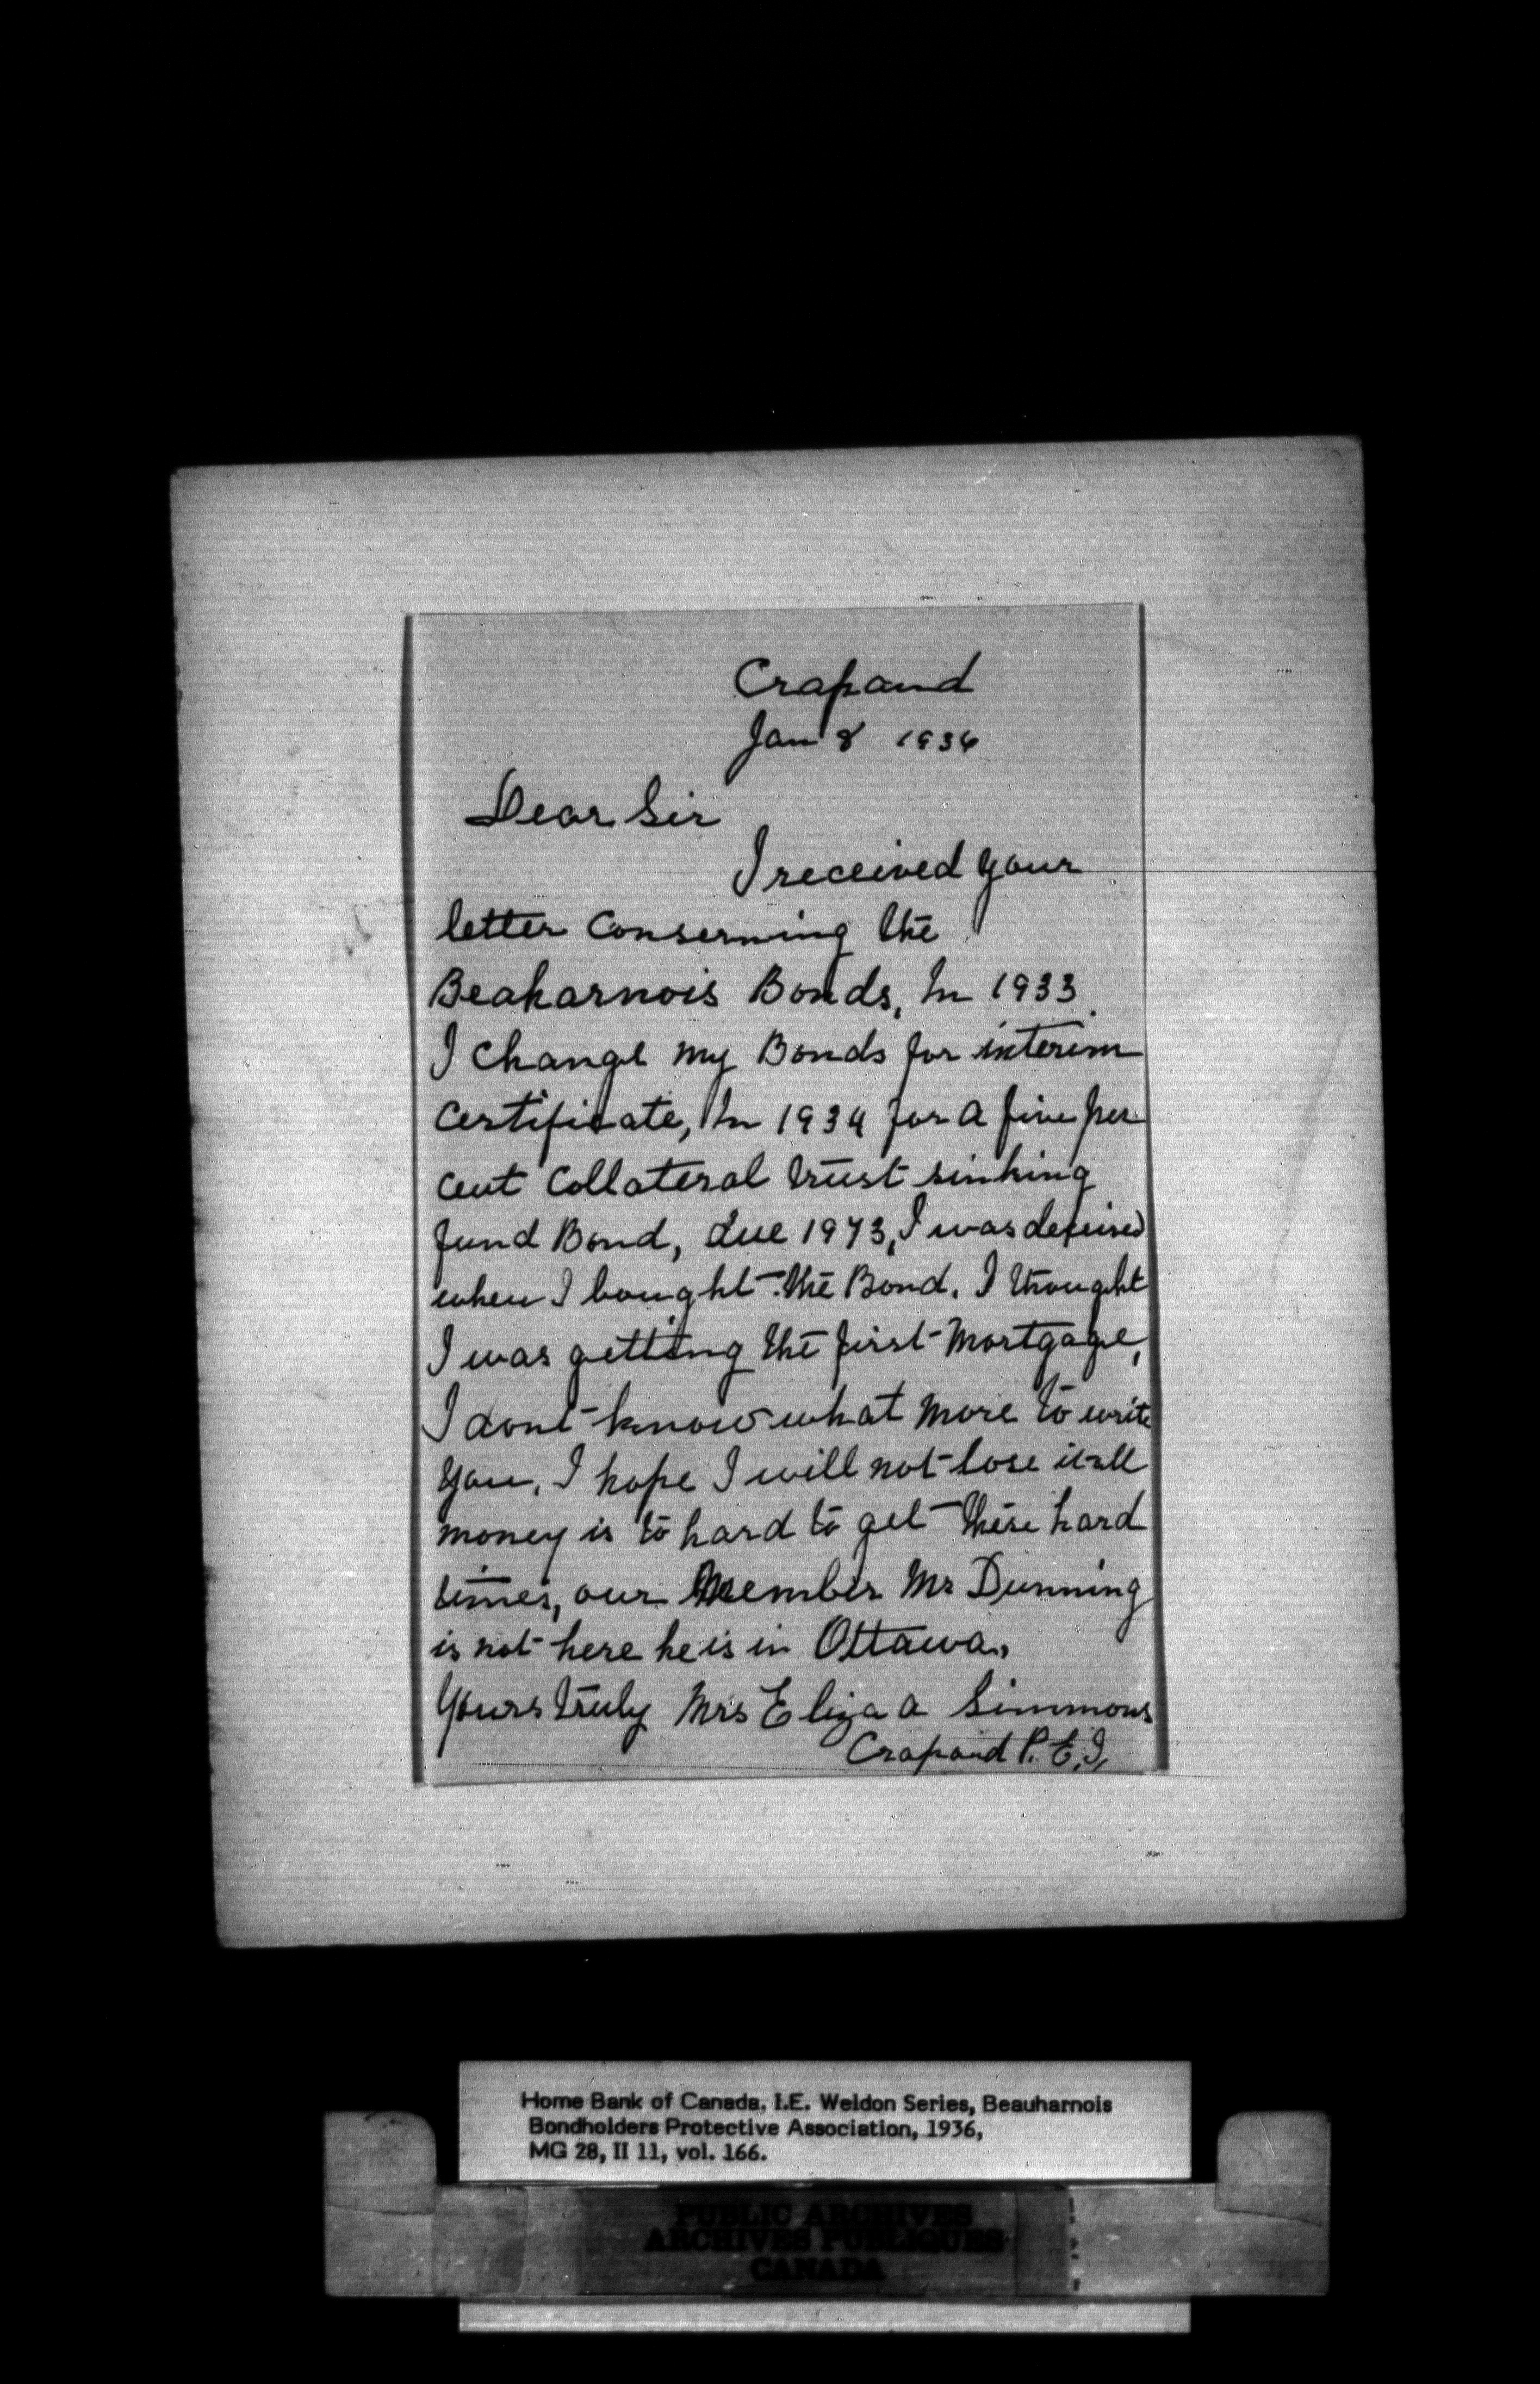 Crapaud
Jan 8 1936
Dear Sir
I received your
letter conserning the
Beaharnois Bonds, In 1933
I change my Bonds for interim
certificate, In 1934 for a five per
cent collateral trust sinking
fund Bond, due 1973, I was deceived
when I bought the Bond. I thought
I was getting the first Mortgage,
I dont know what more to write
you, I hope I will not lose it all
money is to hard to get these hard
times, our Member Mr Dunning
is not here he is in Ottawa,
Yours truly Mrs Eliza A Simmons
Crapaud P. E. I,
Home Bank of Canada, I.E. Weldon Series, Beauharnois
Bondholders Protective Association, 1936,
MG 28, II 11, vol. 166.
PUBLIC ARCHIVES
ARCHIVES PUBLIQUES
CANADA